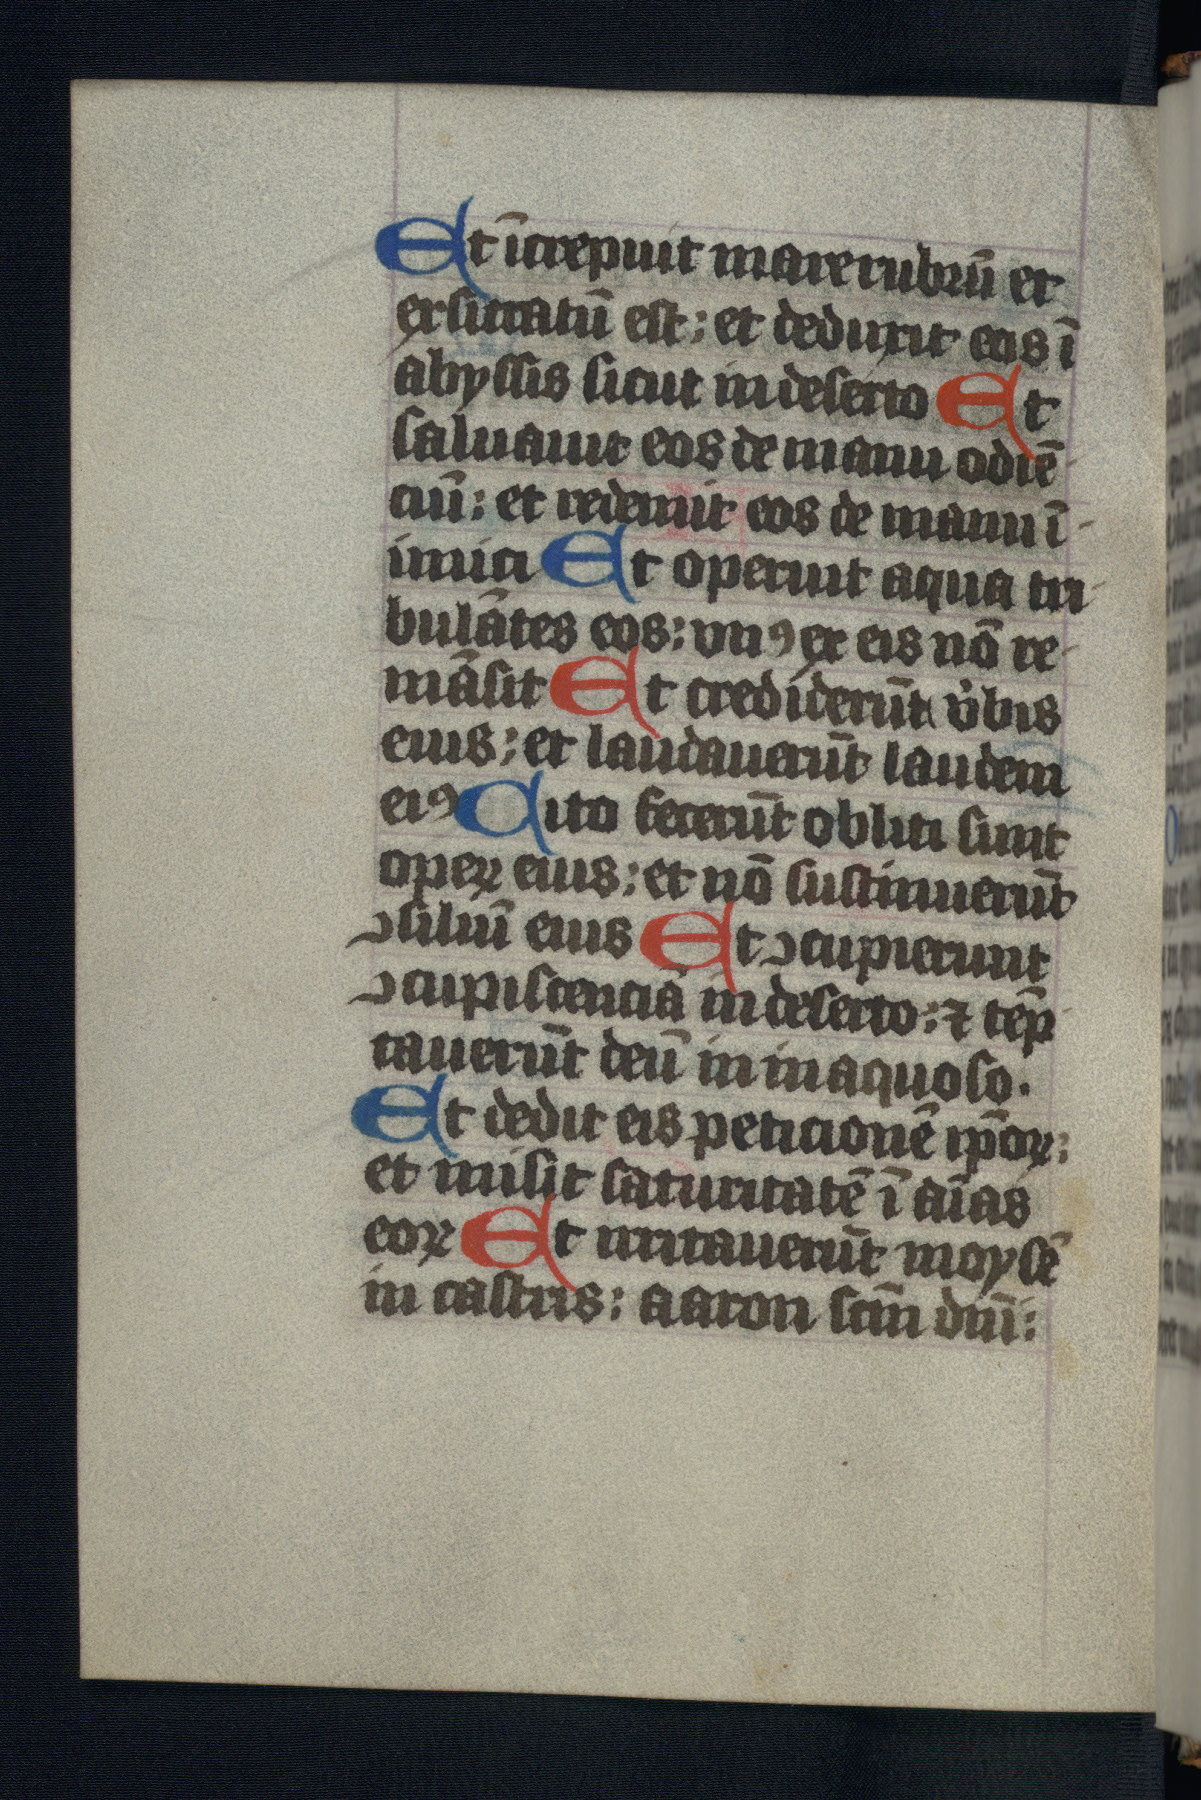 Et īcrepuit mare rubrū et
exsiccatū est : et deduxit eos ī
abyssis sicut in deserto Et
saluauit eos de manu odiē-
ciū : et redemit eos de manu ī-
imici Et operuit aqua tri-
bulātes eos : vnꝰ ex eis nō re-
māsit Et crediderūt v̉bis
eius : et laudauerūt laudem
eiꝰ Cito fecerūt obliti sunt
operꝝ eius : et nō sustinuerūt
ꝯsiliū eius Et ꝯcupierunt
ꝯcupiscenciā in deserto : ⁊ tēp-
tauerūt deū in inaquoso .
Et dedit eis peticionē ip̄oꝝ :
et misit saturitatē ī aīas
eoꝝ Et irritauerūt moysē
in castris : aaron scm̄ dnī :